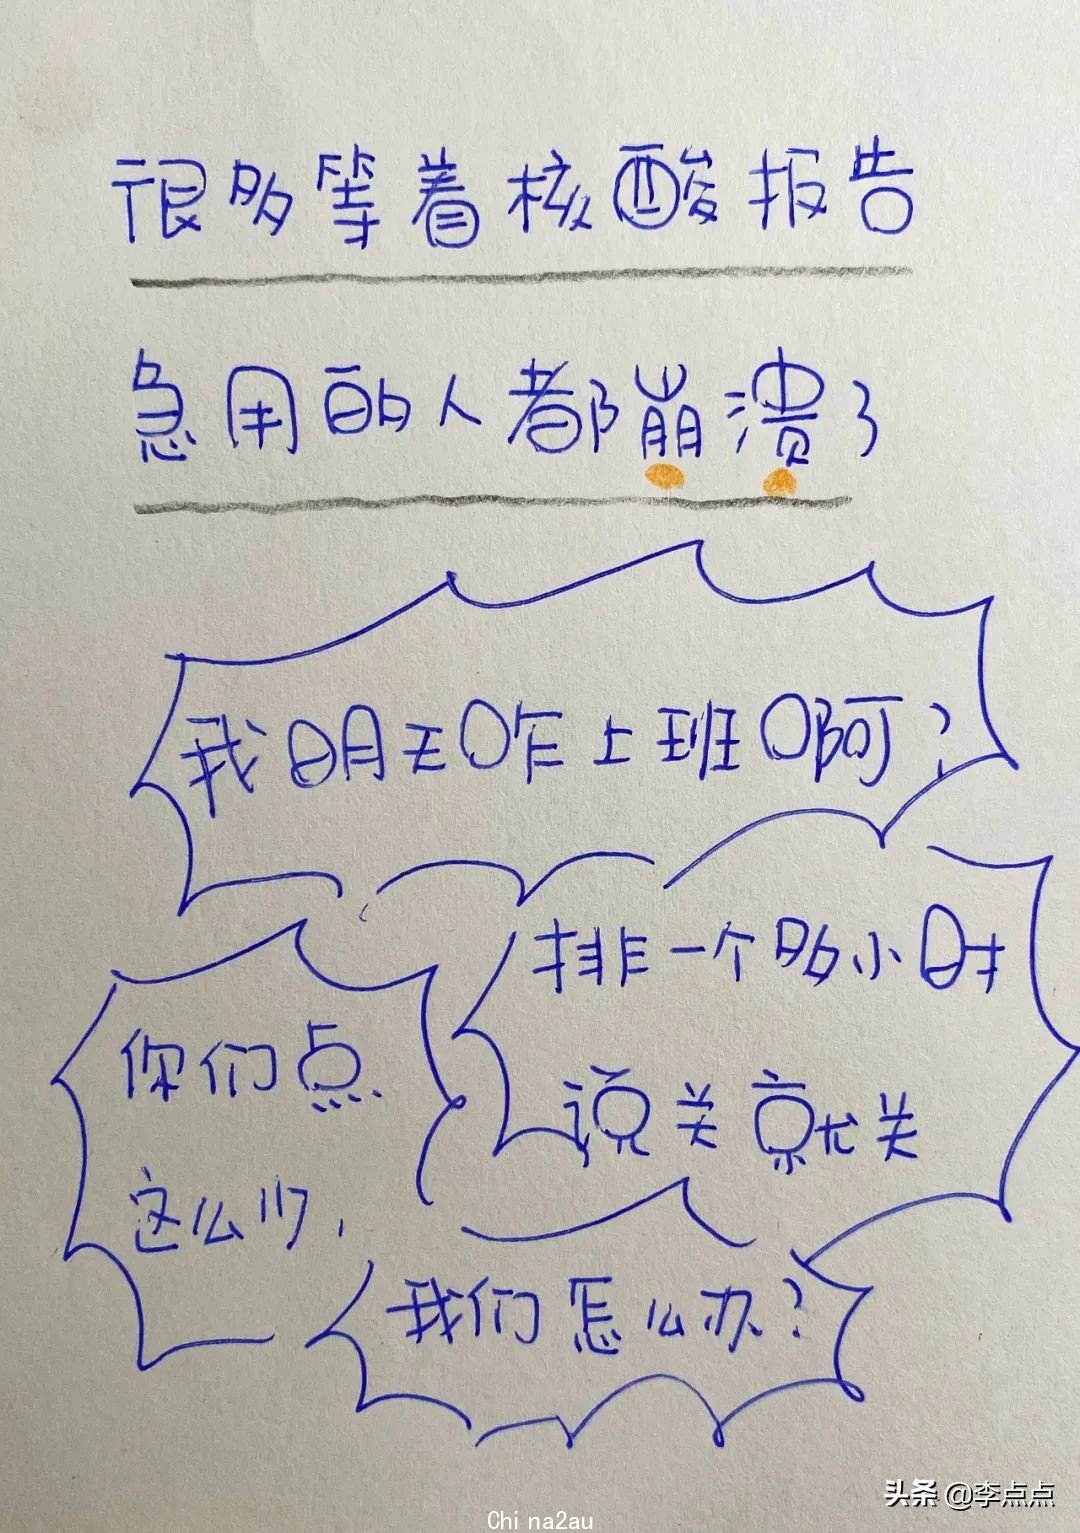 很多等着核酸报告
急用的人都崩溃了
我明天咋上班啊？
排一个多小时
说关就关
你们点
这么
我们怎么办？
头条 @李点点
China2au